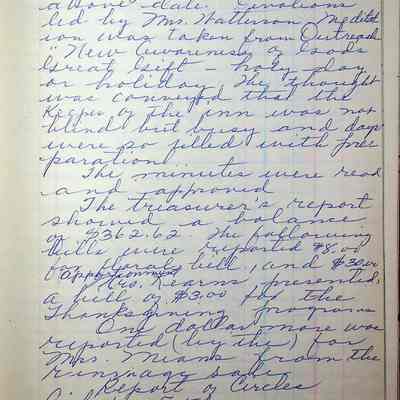 above date. Devotions
led by Mrs. Watterson. Meditat
ion was taken from Outreach
"New Awareness of Gods
Great Gift - holy day
or holiday. The thought
was conveyed that the
Keeper of the inn was not
blind but busy and days
were so filled with pre
paration.
The minutes were read
and approved
The treasurer's report
showed a balance
of $362.62. The following
bills were reported $8.00
for floral bill, and $30.00
Mrs. Kearns presented
a bill of $3.00 for the
Thanksgiving programs
One dollar more was
reported (by the) for
Mrs. Means from the
rummage sale.
Report of Circles